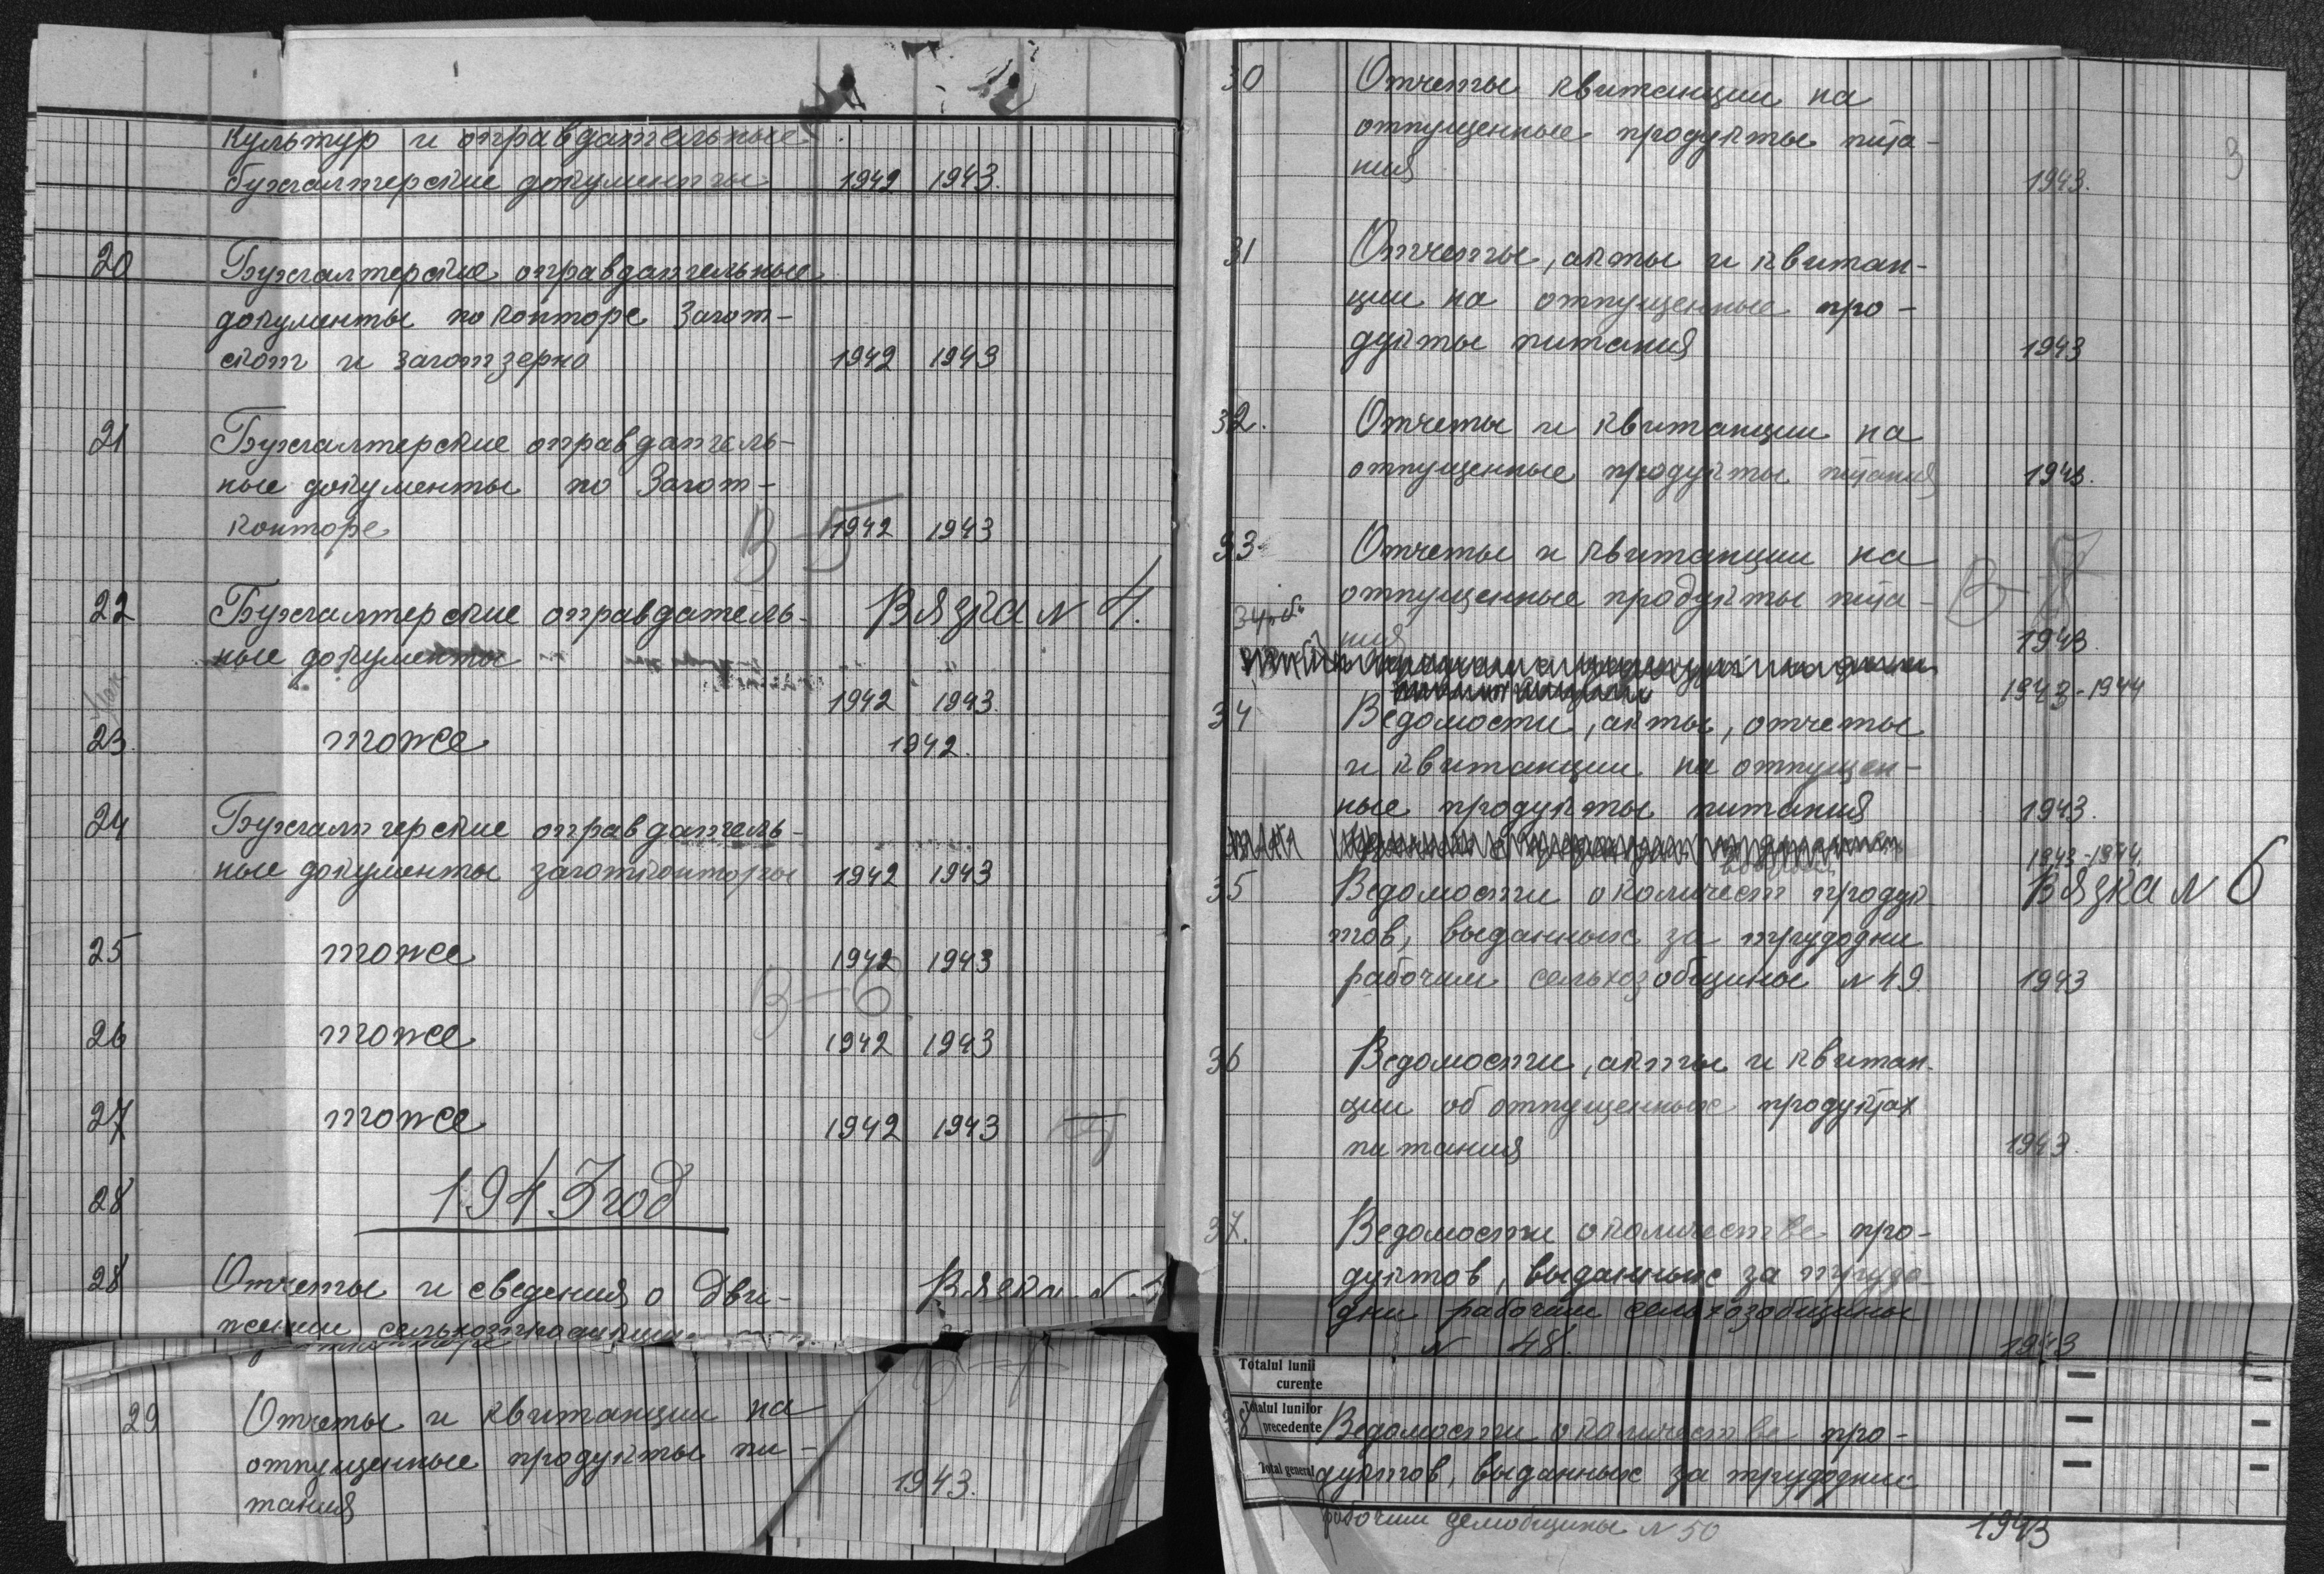 культур и оправдательные
бухгалтерские документы 1942 1943.
20 Бухгалтерские оправдательные
документы по конторе Загот-
скот и заготзерно 1942 1943
21 Бухгалтерские оправдатель-
ные документы по Загот-
конторе 1942 1943
В-5
22 Бухгалтерские оправдатель- Вязка N 4.
ные документы
1942 1943.
23. тоже 1942.
24 Бухгалтерские оправдатель-
ные документы заготконторы 1942 1943
25 тоже 1942 1943
В-6
26 тоже 1942 1943
27 тоже 1942 1943
28 1943 год
28 Отчеты и сведения о дви-
жении
29 Отчеты и квитанции на
отпущенные продукты пи-
тания 1943.
3
30 Отчеты квитанции на
отпущенные продукты пита-
ния 1943.
31 Отчеты, акты и квитан-
ции на отпущенные про-
дукты питания 1943
32. Отчеты и квитанции на
отпущенные продукты питания 1943.
33. Отчеты и квитанции на
отпущенные продукты пита-
ния 1943.
1943-1944
34 Ведомости, акты, отчеты
и квитанции на отпущен-
ные продукты питания 1943.
1943-1944.
35 Ведомости о количест продук- Вязка N 6
тов, выданных за трудодни
рабочим сельхозобщины N 49. 1943
36 Ведомости, акты и квитан-
ции об отпущенных продуктах
питания 1943.
37. Ведомости о количестве про-
дуктов, выданных за трудо-
дни рабочим сельхозобщины
N 48. 1943
Totalul lunii
curente
Totalul lunilor
precedente
8 Ведомости о количестве про-
Total general
дуктов, выданных за трудодни
рабочим N 50 1943